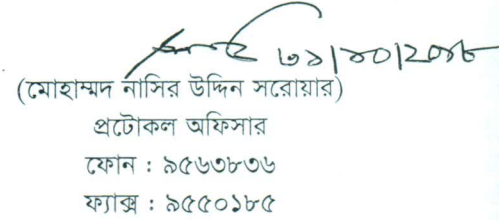 ৩১/১০/২০১৮
(মোহাম্মদ নাসির উদ্দিন সরোয়ার)
প্রটোকল অফিসার
ফোন : ৯৫৬৩৮৩৬
ফ্যাক্স : ৯৫৫০১৮৫